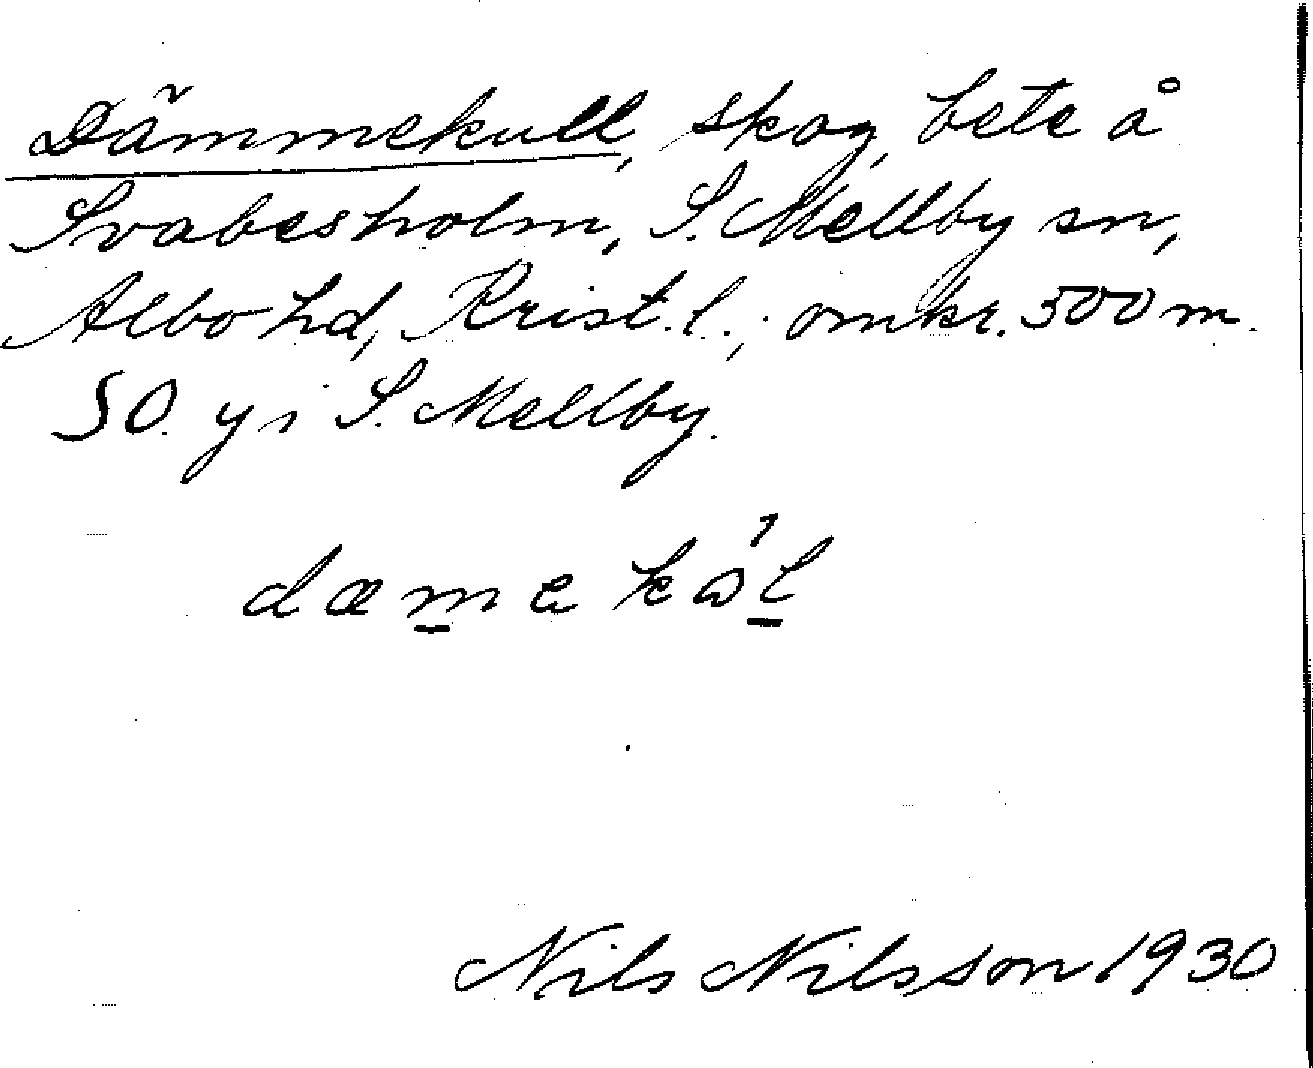 Dämmekull, skog, bete å
Svabesholm, S. Mellby sn,
Albo hd, Krist. l.; omkr. 500 m.
SO. y i S. Mellby.
dæmekɷ́l
Nils Nilsson 1930